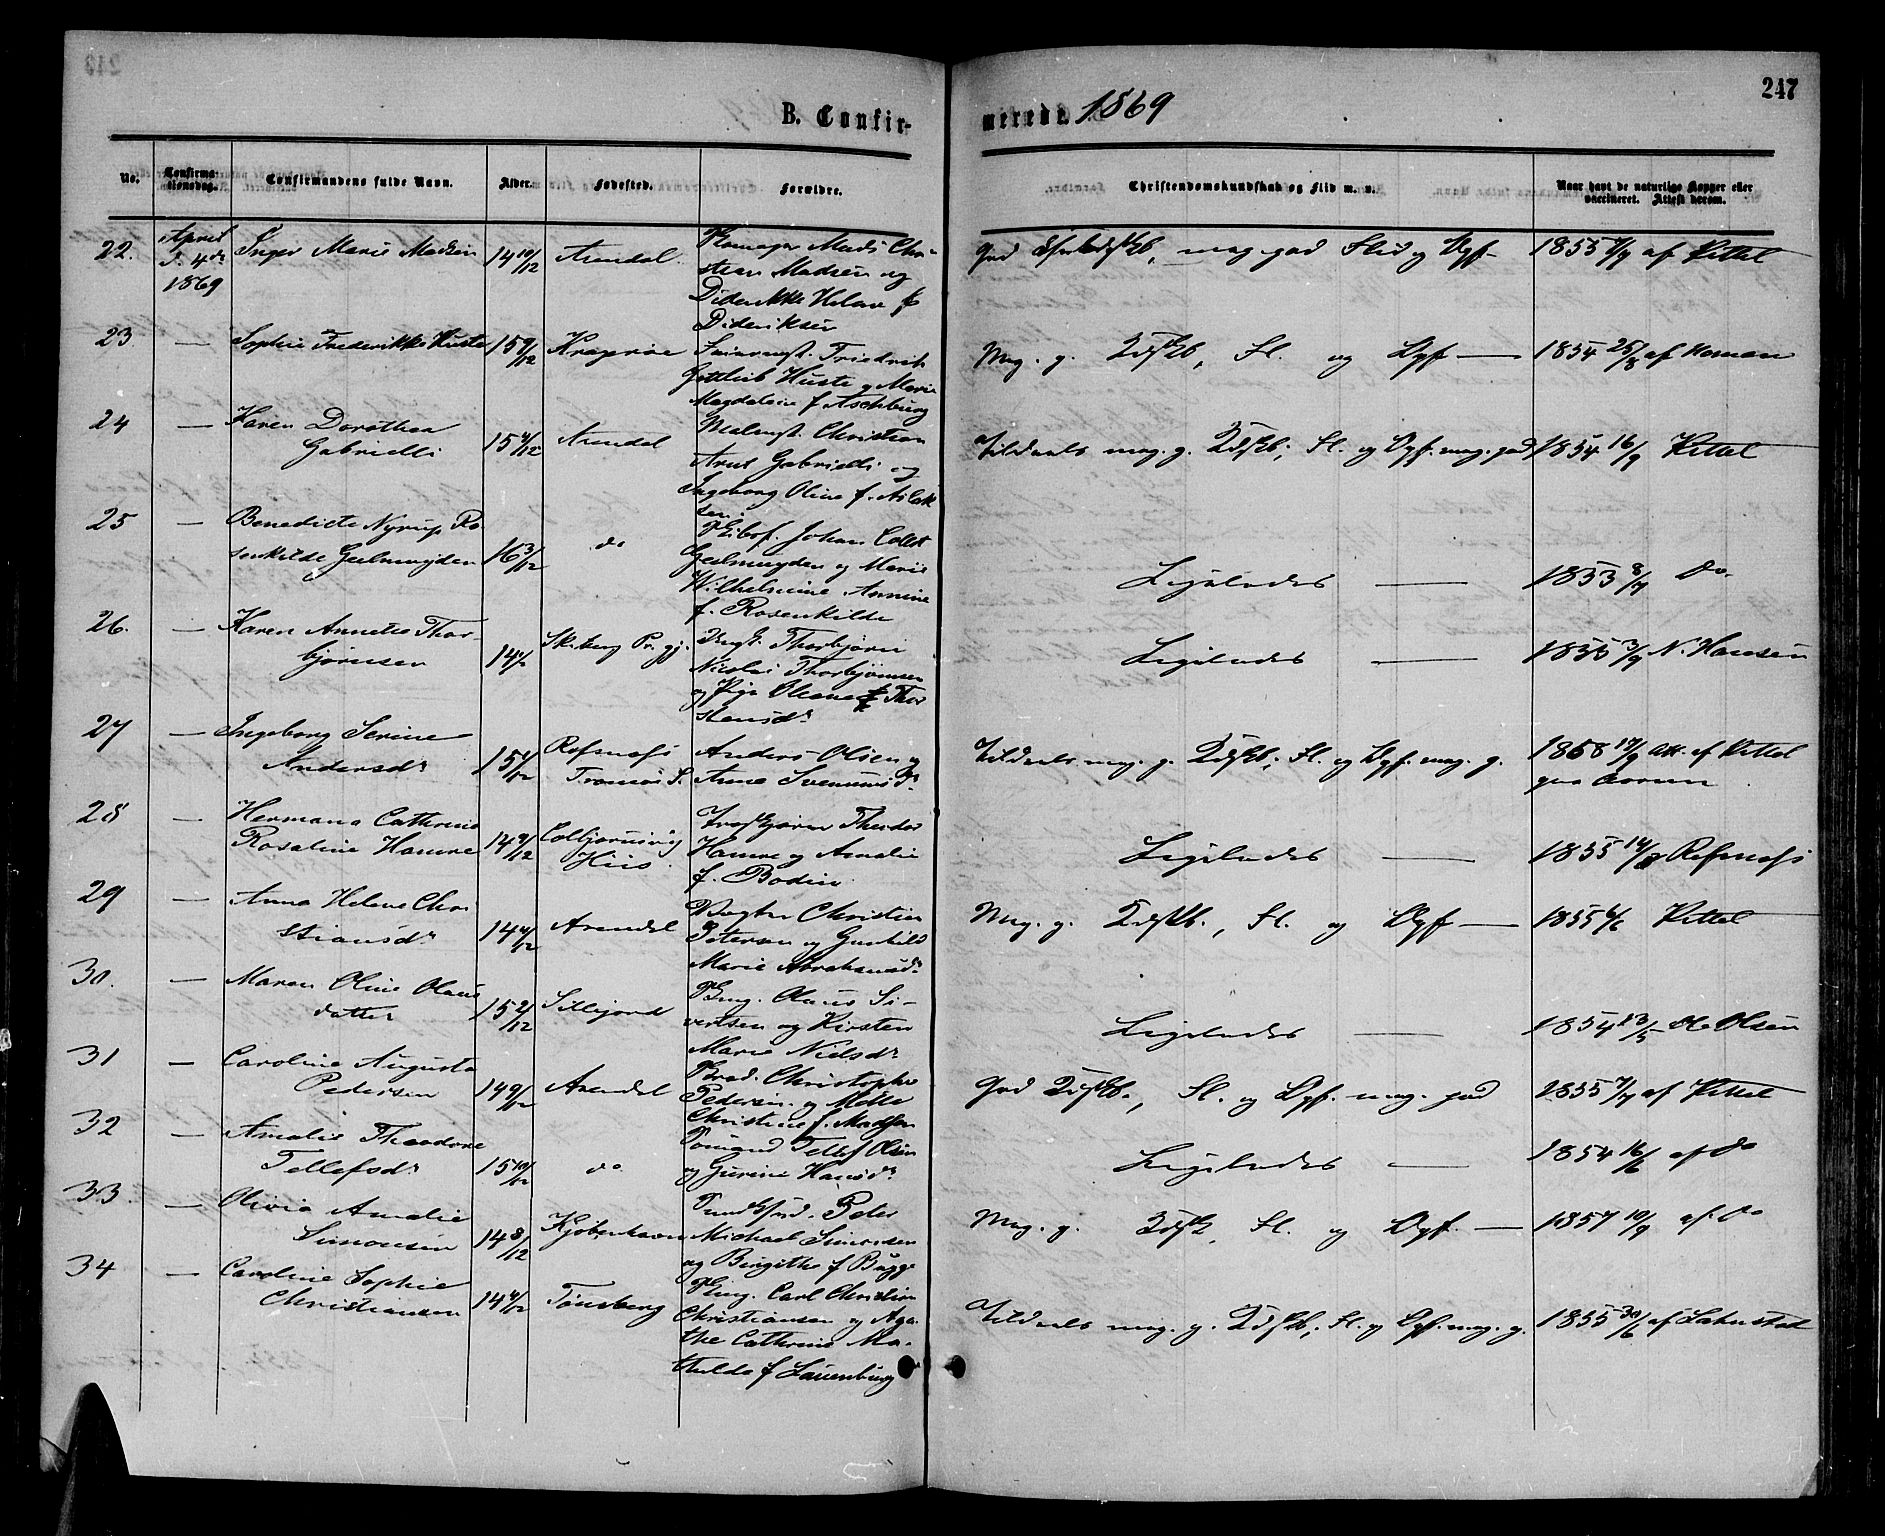 247
B. Confirmerede. 1869
No.
Confirmationsdag.
Confirmandens fulde Navn.
Alder.
Fødested.
Forældre.
Christendomskundskab og Flid m. v.
Naar havt de naturlige Kopper eller vaccineret. Attest derom.
22. April d. 4de 1869 Inger Marie Madsen 14 10/12 Arendal
Mads Christian Madsen og
Diderikke Helene f.
Dideriksen
God mag. god Flid og Opf. 1855 af Kittel
23 — Sophie Frederikke Huste 15 9/12 Kragerøe
Friedrich
Gottlieb Huste og Marie
Magdalene f. Aschburg
Mag. g. Kdskb, Fl. og Opf — 1854 25/8 af Homan
24 — Karen Dorothea
Gabrielli 15 Arendal
Christian
Gabrielli og
Ingeborg Oline f. Aslaksen
mag. g. Kdskb; Fl. og Opf. mag. god 1854 16/9 Kittel
25 — Benedicte Nyrup Rosenkilde Geelmuyden 16 3/12 do
Johan Collet
Geelmuyden og Marie
Wilhelmine Annine
f. Rosenkilde
Ligeledes — 1853 8/7 do.
26. — Karen Annette Thorbjørnsen 14 Skiberg Pr. gj.
Thorbjørn
Nicolai Thorbjørnsen
og Olsen f. Thorstensdr
Ligeledes — 1855 3/9 N. Hansen
27 — Ingeborg Serine
Andersdr 15 Tromø S.
Anders Olsen og
Anne Svenumsdr
mag. g. Kdskb; Fl. og Opf. mag. g. 1858 17/9 Att. af Kittel
28 — Hermana Cathrine
Rosaline Hamre 14 9/12 Colbjørnsvig
Hisø
Theodor
Hamre og Amalie
f. Bodin
Ligeledes — 1855 Refsnæs
29 — Anna Helene Christiansdr 14 Arendal
Christian
Petersen og Gunhild
Marie Abrahamsdr
Mag. g. Kdskb., Fl. og Opf — 1855 Kittel
30. — Maren Oline Olausdatter 15 2/12 Sillejord
Olaus Sivertsen og Kirsten
Marie Nielsdr
Ligeledes — 1854 13/5 Ole Olsen
31 — Caroline Augusta
Pedersen 14 9/12 Arendal
Christopher
Pedersen og Mette
Christine f. Madsen
God Kdskb., Fl. og Opf. mag. god 1855 af Kittel
32 — Amalie Theodore
Tellefsdr 15 10/12 do
Tellef Olsen
og Gurine Hansdr
Ligeledes — 1854 16/6 af do
33. — Olivia Amalie
Simonsen 14 8/12 Kjøbenhavn
Peter
Michael Simonsen
og Birgithe f. Bugge
Mag. g. Kdsk, Fl. og Opf. — 1857 10/9 af do
34 — Caroline Sophie
Christiansen 14 Tønsberg
Carl Christian
Christiansen og Agathe Cathrine Mathilde f. Lauenburg
mag. g. Kdskb; Fl. og Opf. mag. g. 1855 30/6 af